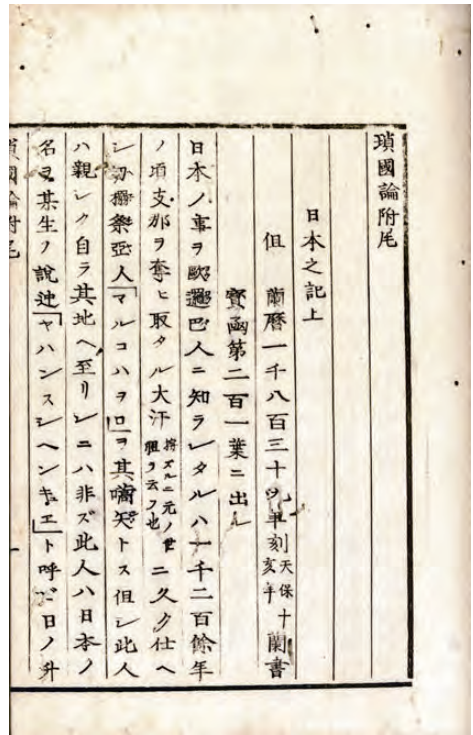 瑣國論附尾
日本之記上
但 蘭曆一千八百三十九年刻天保十亥年蘭書
寳函第二百一葉ニ出ル
日本ノ事ヲ歐邏巴人ニ知ラシタルハ一千二百餘年
ノ頃支那ヲ奪ヒ取タル大汗按ズルニ元ノ世祖ヲ云フ也ニ久ク仕ヘ
シ勿搦祭亞人「マルコハヲロ」ヲ其嚆矢トス但シ此人
ハ親シク自ラ其地ヘ至リシニハ非ズ此人ハ日本ノ
名ヲ其生ノ說述「ヤハンスシヘンキュエ」ト呼ビ日ノ升